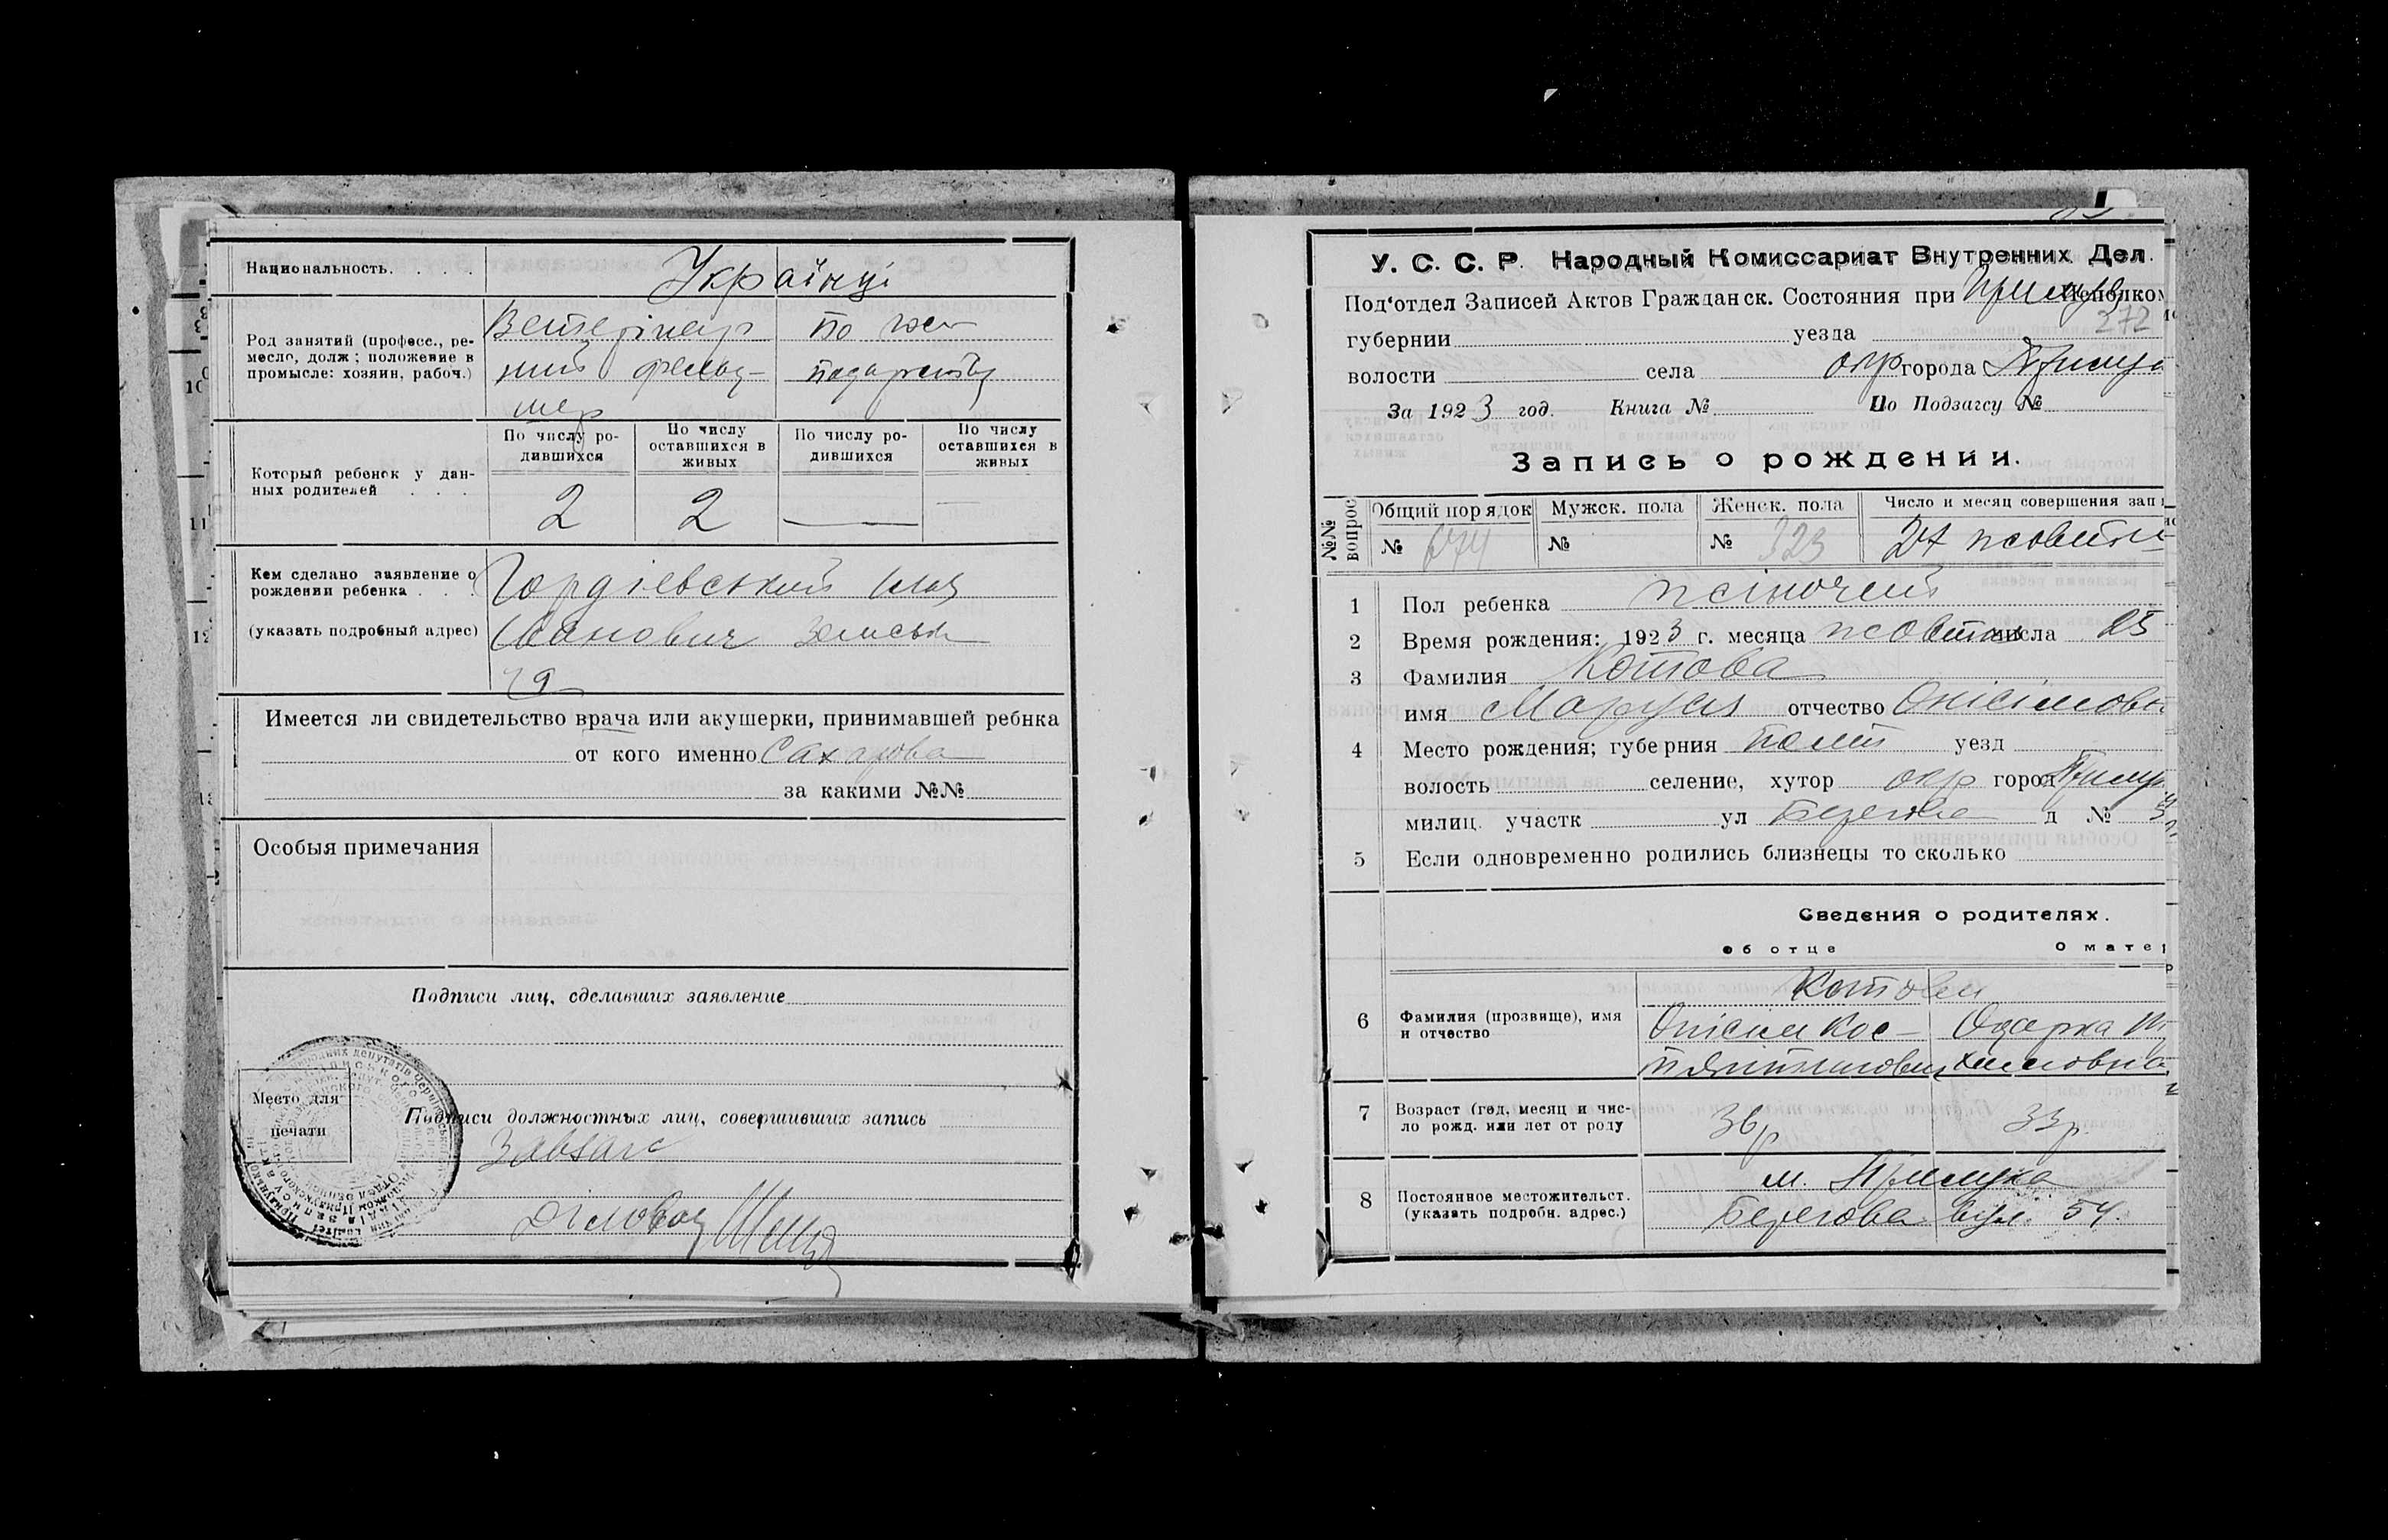 Национальность. . . . .
Українці
Род занятий (професс., ре-
месло, долж; положение в
промысле: хозяин, рабоч.)
Ветерінар
ний фельд-
шер
По гос
подарству
Который ребенок у дан-
ных родителей . . .
По числу ро-
дившихся
По числу
оставшихся в
живых
По числу ро-
дившихся
По числу
оставшихся в
живых
2
2
—
—
Кем сделано заявление о
рождении ребенка . . .
(указать подробный адрес)
Гордієвський Ілля
Іванович
Имеется ли свидетельство врача или акушерки, принимавшей ребнка
от кого именно Сахарова
за какими №№
Особыя примечания
Подписи лиц, сделавших заявление
Место для
печати
Подписи должностных лиц, совершивших запись
Завзагс
Діловод
У. С. С. Р. Народный Комиссариат Внутренних Дел.
Под'отдел Записей Актов Гражданск. Состояния при Прилуц исполком
губернии уезда
272
волости села окр города
За 1923 год. Книга № По Подзагсу №
Запись о рождении.
№№ вопрос.
Общий порядок
Мужск. пола
Женск. пола
Число и месяц совершения зап
№ 674
№
№ 323
27 жовтн
1 Пол ребенка жіночий
2 Время рождения: 1923 г. месяца жовтня числа 25
3 Фамилия Котова
имя Маруся отчество Онісімовн
4 Место рождения; губерния Полт уезд
волость селение, хутор окр город Прилук
милиц. участк ул Берегова д №
5 Если одновременно родились близнецы то сколько
Сведения о родителях.
об отце О матер
6 Фамилия (прозвище), имя
и отчество
Котови
Онісім Кос-
тянтинович
Одарка
химовна
7 Возраст (год, месяц и чис-
ло рожд. или лет от роду
36 р
33 р
8 Постоянное местожительст.
(указать подробн. адрес.)
м. Прилука
Берегова вул. 54.